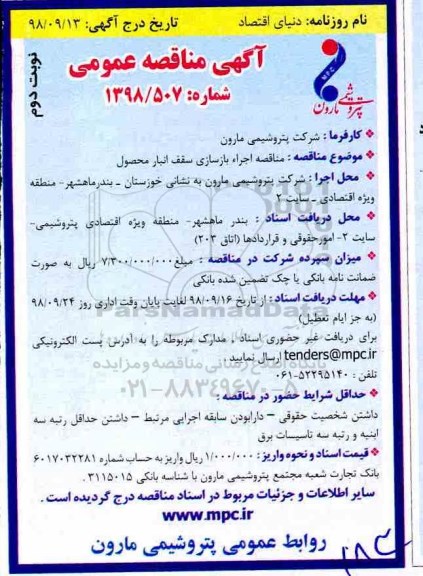 نام روزنامه: دنیای اقتصاد تاریخ درج آگهی: ۹۸/۰۹/۱۳
نوبت دوم
آگهی مناقصه عمومی
شماره: ۱۳۹۸/۵۰۷
MPC
پتروشیمی مارون
کارفرما : شرکت پتروشیمی مارون
موضوع مناقصه : مناقصه اجراء بازسازی سقف انبار محصول
محل اجرا : شرکت پتروشیمی مارون به نشانی خوزستان ـ بندرماهشهر- منطقه
ویژه اقتصادی ـ سایت ۲
محل دریافت اسناد : بندر ماهشهر- منطقه ویژه اقتصادی پتروشیمی-
سایت ۲- امورحقوقی و قراردادها (اتاق ۲۰۳)
میزان سپرده شرکت در مناقصه : مبلغ ۷/۳۰۰/۰۰۰/۰۰۰ ریال به صورت
ضمانت نامه بانکی یا چک تضمین شده بانکی
مهلت دریافت اسناد : از تاریخ ۹۸/۰۹/۱۶ لغایت پایان وقت اداری روز ۹۸/۰۹/۲۴
(به جز ایام تعطیل)
برای دریافت غیر حضوری اسناد ، مدارک مربوطه را به آدرس پست الکترونیکی
tenders@mpc.ir ارسال نمایید .
تلفن : ۵۲۲۹۵۱۴۰-۰۶۱
حداقل شرایط حضور در مناقصه :
داشتن شخصیت حقوقی – دارابودن سابقه اجرایی مرتبط – داشتن حداقل رتبه سه
ابنیه و رتبه سه تاسیسات برق
قیمت اسناد و نحوه واریز : ۱/۰۰۰/۰۰۰ ریال واریز به حساب شماره ۶۰۱۷۰۳۲۲۸۱
بانک تجارت شعبه مجتمع پتروشیمی مارون با شناسه بانکی ۳۱۱۵۰۱۵ .
سایر اطلاعات و جزئیات مربوط در اسناد مناقصه درج گردیده است .
www.mpc.ir
روابط عمومی پتروشیمی مارون
ParsNamadData
پایگاه اطلاع رسانی مناقصه و مزایده
۰۲۱-۸۸۳۴۹۶۷۰-۵